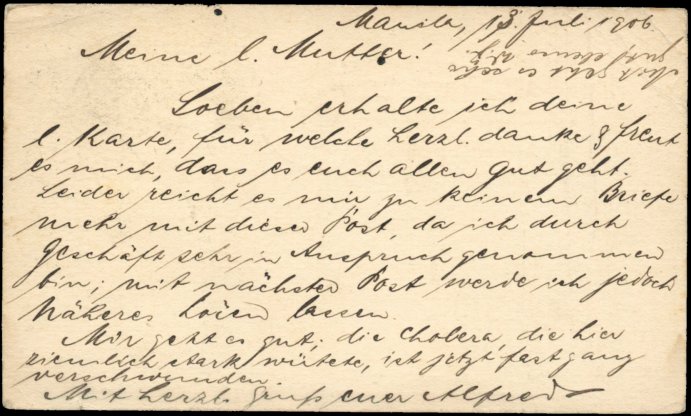 Manila, 13. Juli 1906.
Meine l. Mutter!
Soeben erhalte ich deine
l. Karte, für welche herzl. danke & freut
es mich, dass es euch allen gut geht.
Leider reicht es mir zu keinem Briefe
mehr mit dieser Post, da ich durch
Geschäft sehr in Anspruch genommen
bin; mit nächster Post werde ich jedoch
Näheres hören lassen.
Mir geht es gut; die Cholera, die hier
ziemlich stark wütete, ist jetzt fast ganz
verschwunden.
Mit herzl. Gruß euer Alfred
geht es sehr
gut, ebenso